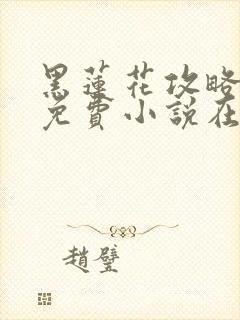 黑蓮花攻略
免費小說在
趙璧